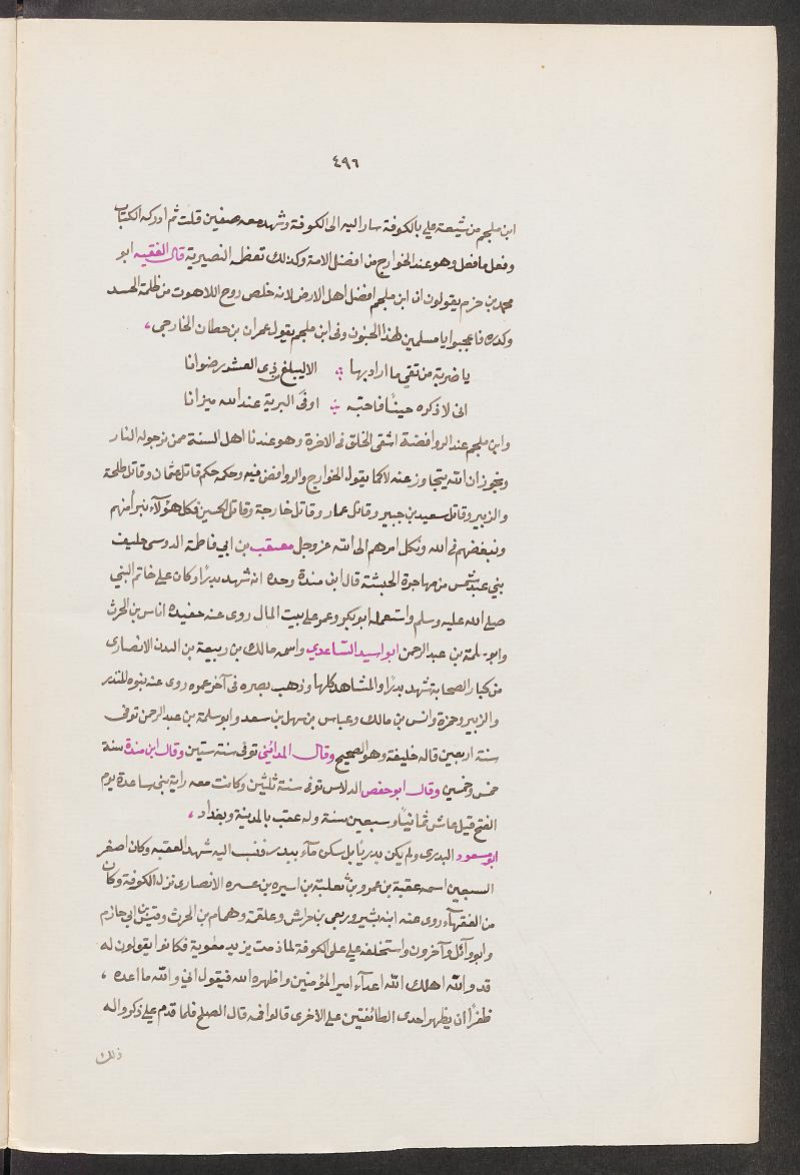 ٤٩٦
ابن ملجم من شيعة علي بالكوفة سار اليه الى الكوفة وشهد معه صفين قلت ثم ادركه الكتاب
وفعل ما فعل وهو عند الخوارج من افضل الامة وكذلك تعظمه النصيرية قال الفقيه ابو
محمد بن حزم يقولون ان ابن ملجم افضل اهل الارض لانه خلص روح اللاهوت من ظلمة الجسد
وكدره فاعجبوا يا مسلمين لهذا الجنون وفي ابن ملجم يقول عمران بن حطان الخارجي
يا ضربة من تقي ما اراد بها الا ليبلغ من ذي العرش رضوانا
انى لاذكره حينًا فاحبه اوفى البرية عند الله ميزانا
وابن ملجم عند الروافضة اشقى الخلق في الاخرة وهو عندنا اهل السنة ممن نرجو له النار
ونجوز ان الله يتجاوز عنه لا كما يقول الخوارج والروافض فيه وحكمه حكم قاتل عثمان وقاتل طلحة
والزبير وقاتل سعيد بن جبير وقاتل عمار وقاتل خارجة وقاتل الحسين فكل هؤلآء نبرأ منهم
ونبغضهم في الله ونكل امرهم الى الله عز وجل معيقب بن ابي فاطمة الدوسى حليف
بني عبد شمس من مهاجرة الحبشة قال ابن مندة وحده انه شهد بدرًا وكان على خاتم النبي
صلى الله عليه وسلم واستعمله ابو بكر وعمر على بيت المال روى عنه حفيده اناس بن الحرث
وابو سلمة بن عبد الرحمن ابو اسيد الساعدي واسمه مالك بن ربيعة بن البدن الانصارى
من كبار الصحابة شهد بدرًا والمشاهد كلها وذهب بصره في آخر عمره روى عنه بنوه المنذر
والزبير وحمزة وانس بن مالك وعباس بن سهل بن سعد وابو سلمة بن عبد الرحمن توفى
سنة اربعين قاله خليفة وهو الصحيح وقال المدائني توفى سنة ستين وقال ابن مندة سنة
خمس وخمسين وقال ابو حفص الدلاس توفى سنة ثلثين وكانت معه راية بنى ساعدة يوم
الفتح قيل عاش ثمانيًا وسبعين سنة وله عقب بالمدينة وبغداد
ابو مسعود البدرى ولم يكن بدريًا بل سكن مآء ببدر فنسب اليه شهد العقبه وكان اصغر
السبعين اسمه عقبة بن عمرو بن ثعلبة بن اسيره بن عسره الانصارى نزل الكوفة وكان
من الفقهآء روى عنه ابنه بشير وربعي بن حراش وعلقمة وهمام بن الحرث وقيس بن ابي حازم
وابو وآئل وآخرون واستخلفه علي على الكوفة لما ذهب يريد معوية فكانوا يقولون له
قد والله اهلك الله اعدآء امير المؤمنين واظهره الله فيقول اني والله ما اعده
ظفرًا ان يظهر احدى الطائفتين على الاخرى قالوا فمه قال الصلح فلما قدم علي ذكروا له
ذلك